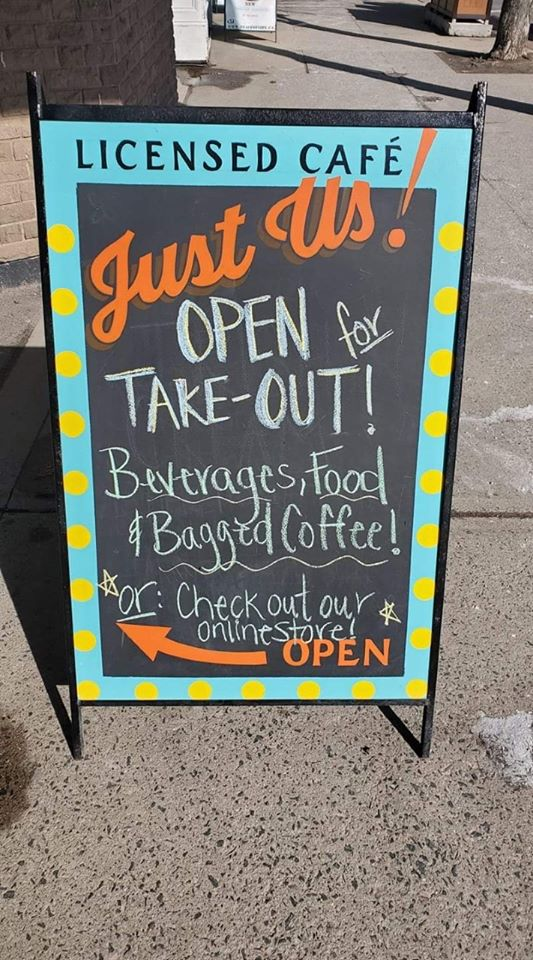 LICENSED CAFÉ
Just Us!
OPEN for
TAKE-OUT!
Beverages, Food
& Bagged Coffee!
or: Check out our
online store!
OPEN